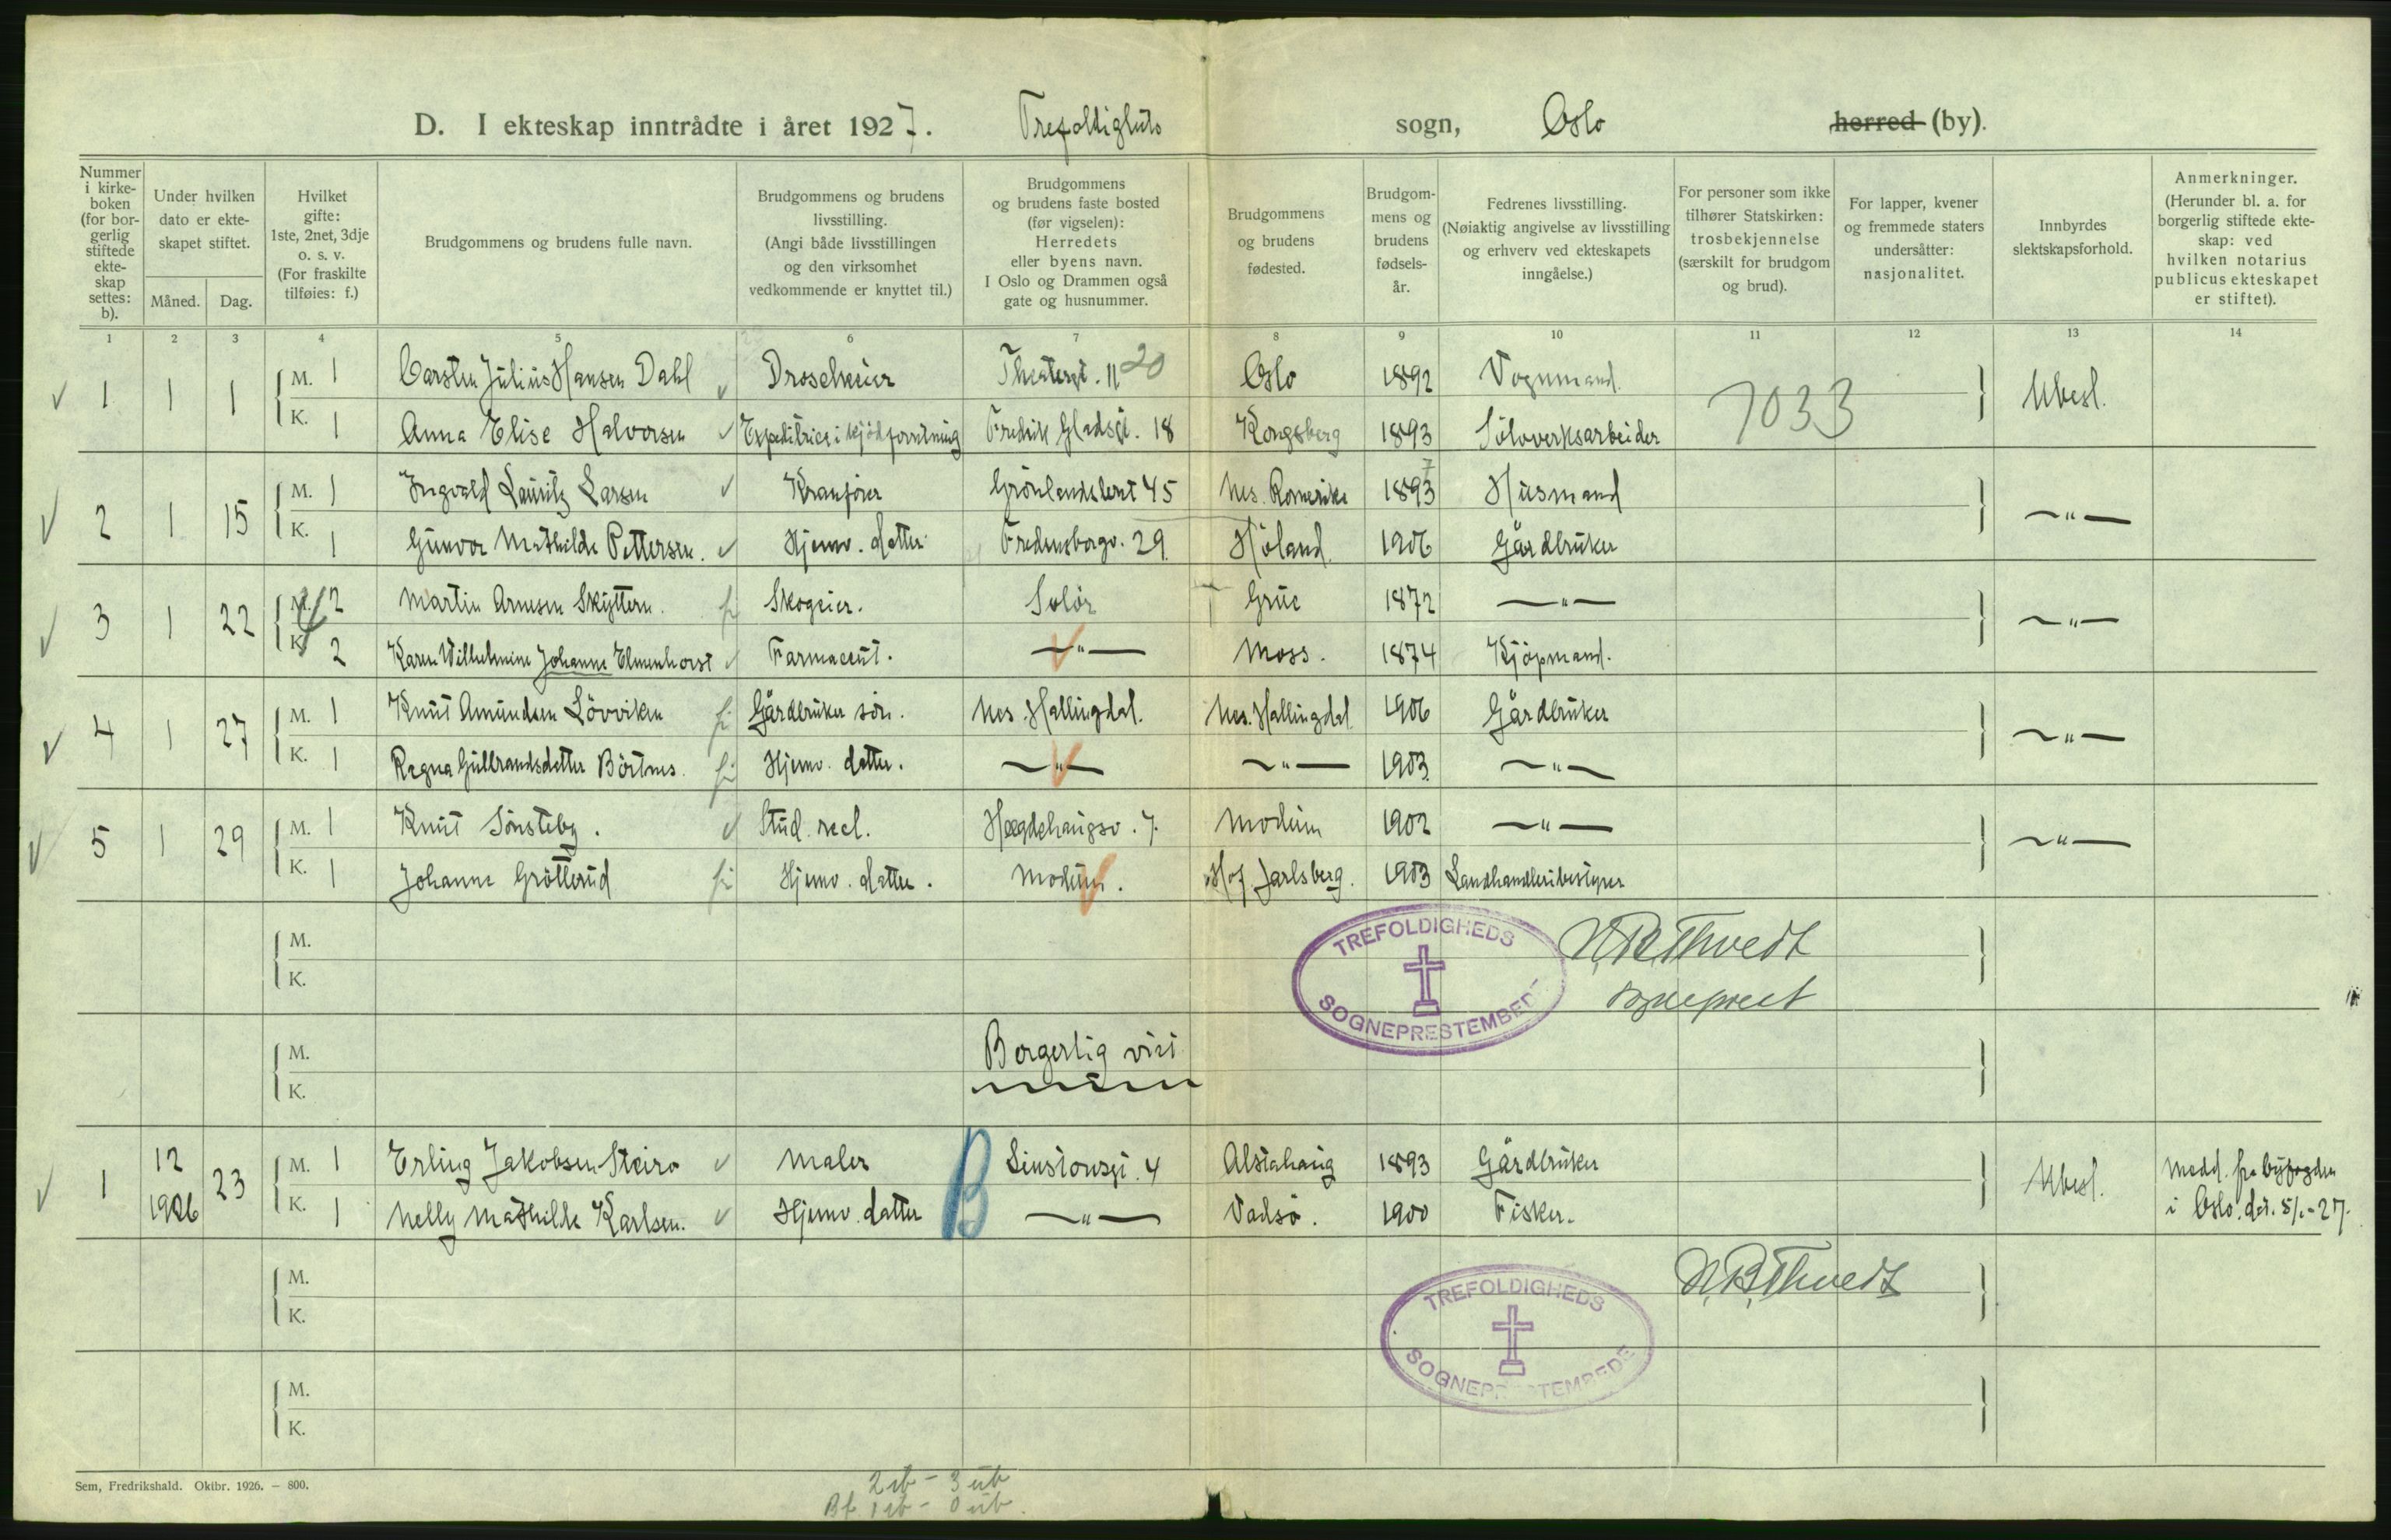 D. I ekteskap inntrådte i året 1927. Trefoldighets sogn, Oslo herred (by).
Nummer i kirke-boken (for bor-gerlig stiftede ekte-skap settes: b).
Under hvilken dato er ekte-skapet stiftet.
Måned. Dag.
Hvilket gifte: 1ste, 2net, 3dje o. s. v. (For fraskilte tilføies: f.)
Brudgommens og brudens fulle navn.
Brudgommens og brudens livsstilling. (Angi både livsstillingen og den virksomhet vedkommende er knyttet til.)
Brudgommens og brudens faste bosted (før vigselen): Herredets eller byens navn. I Oslo og Drammen også gate og husnummer.
Brudgommens og brudens fødested.
Brudgom-mens og brudens fødsels-år.
Fedrenes livsstilling. (Nøiaktig angivelse av livsstilling og erhverv ved ekteskapets inngåelse.)
For personer som ikke tilhører Statskirken: trosbekjennelse (særskilt for brudgom og brud).
For lapper, kvener og fremmede staters undersåtter: nasjonalitet.
Innbyrdes slektskapsforhold.
Anmerkninger. (Herunder bl. a. for borgerlig stiftede ekte-skap: ved hvilken notarius publicus ekteskapet er stiftet).
1 2 3 4 5 6 7 8 9 10 11 12 13 14
1 1 1 M. 1 Carsten Julius Hansen Dahl Droscheeier Theatergt. 11 20 Oslo 1892 Vognmand. 7033 Ubesl.
K. 1 Anna Elise Halvorsen Expeditrice i kjødforretning Fredrik Gladsgt. 18 Kongsberg 1893 Sölvverksarbeider
2 1 15 M. 1 Ingvald Lauritz Larsen Kranfører Grönlandsleret 45 Nes. Romerike 1893 7 Husmand —"—
K. 1 Gunvor Mathilde Pettersen. Hjemv. datter Fredensborgv. 29 Höland. 1906 Gårdbruker
3 1 22 M. 2 Martin Arnesen Skyttern. Skogeier. Solör Grue 1872 —"— —"—
K. 2 Karen Wilhelmine Johanne Elmenhorst Farmaceut. —"— Moss. 1874 Kjöpmand.
4 1 27 M. 1 Knut Amundsen Lövviken Gårdbruker sön. Nes. Hallingdal. Nes. Hallingdal 1906 Gårdbruker —"—
K. 1 Ragna Gulbrandsdatter Börtnes. Hjemv. datter. —"— —"— 1903 —"—
5 1 29 M. 1 Knut Sönsteby. Stud. real. Hægdehaugsv. 7. Modum 1902 —"— —"—
K. 1 Johanne Grötterud Hjemv. datter. Modum. Hof Jarlsberg. 1903 Landhandleribestyrer
M.
K.
TREFOLDIGHEDS SOGNEPRESTEMBEDE
N. B. Thvedt
sogneprest
M.
K.
Borgerlig viet
1 12 1926 23 M. 1 Erling Jakobsen Steiro Maler B Sinsensgt. 4 Alstahaug 1893 Gårdbruker Ubesl. Medd. fra byfogden
K. 1 Nelly Mathilde Karlsen. Hjemv. datter —"— Vadsö. 1900 Fisker. i Oslo, dat. 5/1-27.
M.
K.
TREFOLDIGHEDS SOGNEPRESTEMBEDE
N. B. Thvedt
M.
K.
Sem, Fredrikshald. Oktbr. 1926. — 800.
2 ib - 3 ub
Bf. 1 ib - 0 ub.